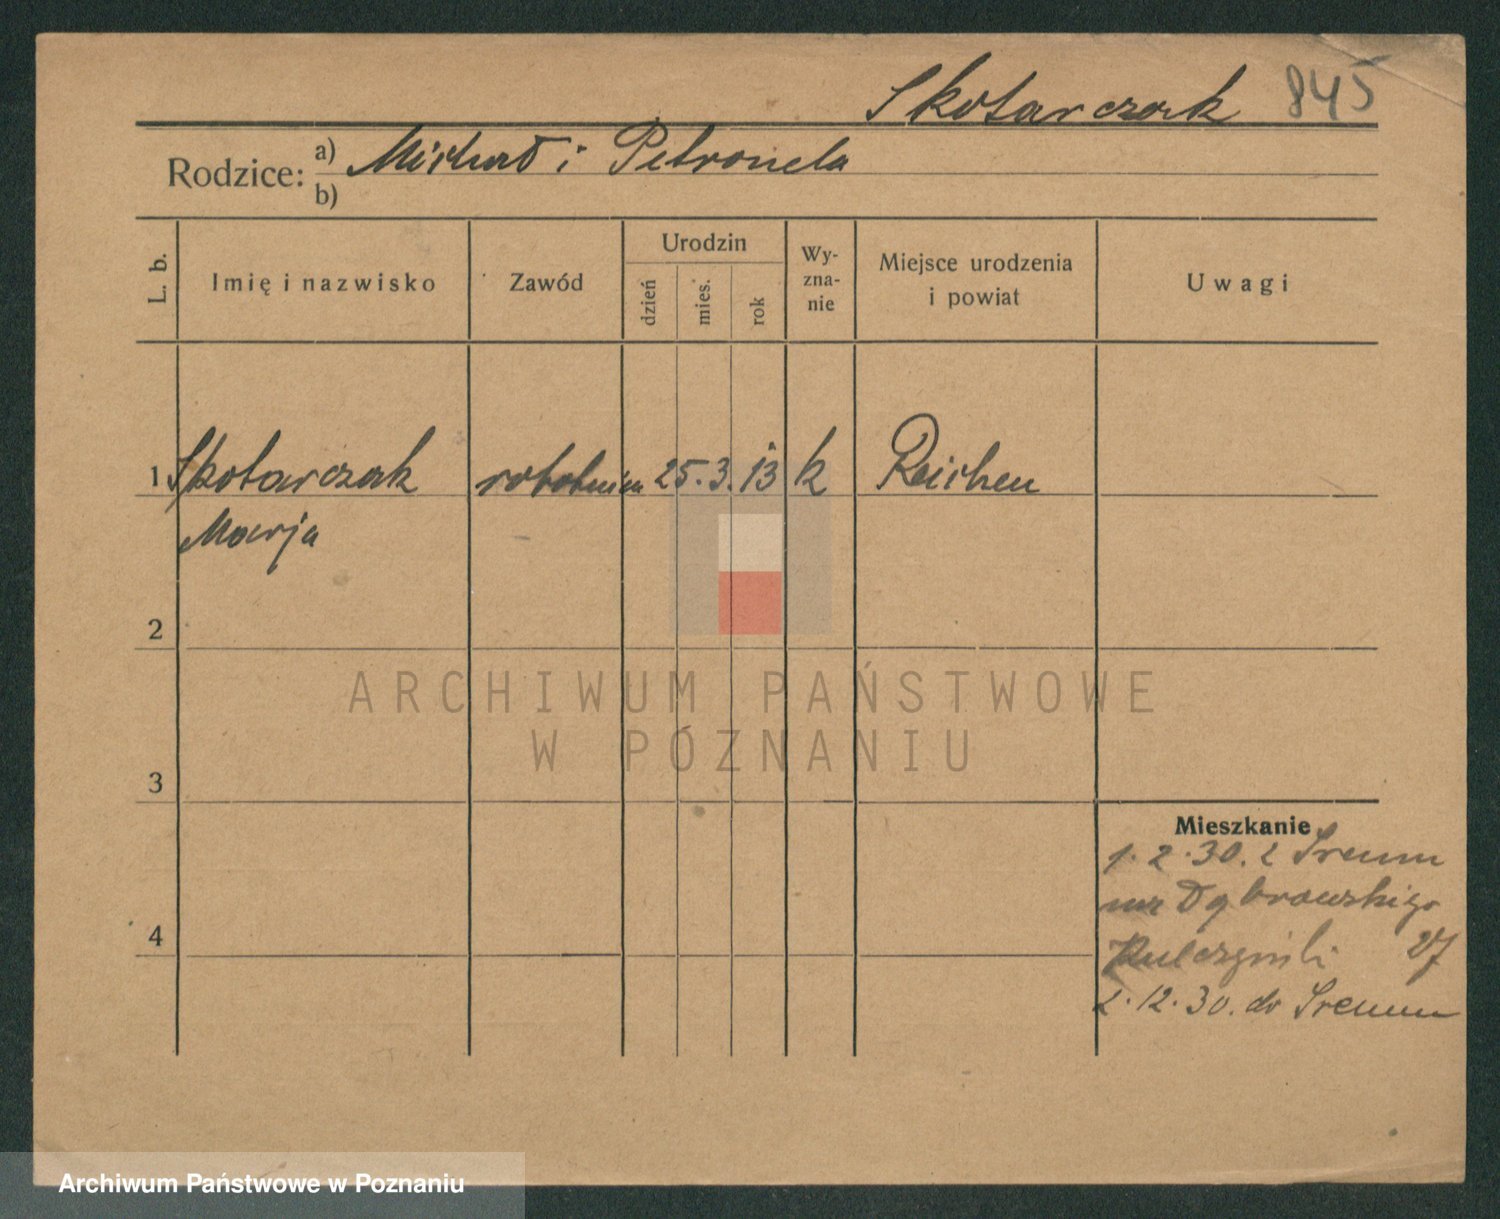 Skotarczak 845
Rodzice: a) Michał i Petronela
b)
L. b.
Imię i nazwisko
Zawód
Urodzin
dzień
mies.
rok
Wy-
zna-
nie
Miejsce urodzenia
i powiat
Uwagi
1 Skotarczak robotnica 25. 3. 13 k Reichen
Marja
2
ARCHIWUM PAŃSTWOWE
W POZNANIU
3
Mieszkanie
1. 2. 30. z Śremu
Dąbrowskiego
4
27
2. 12. 30. do Śremu
Archiwum Państwowe w Poznaniu